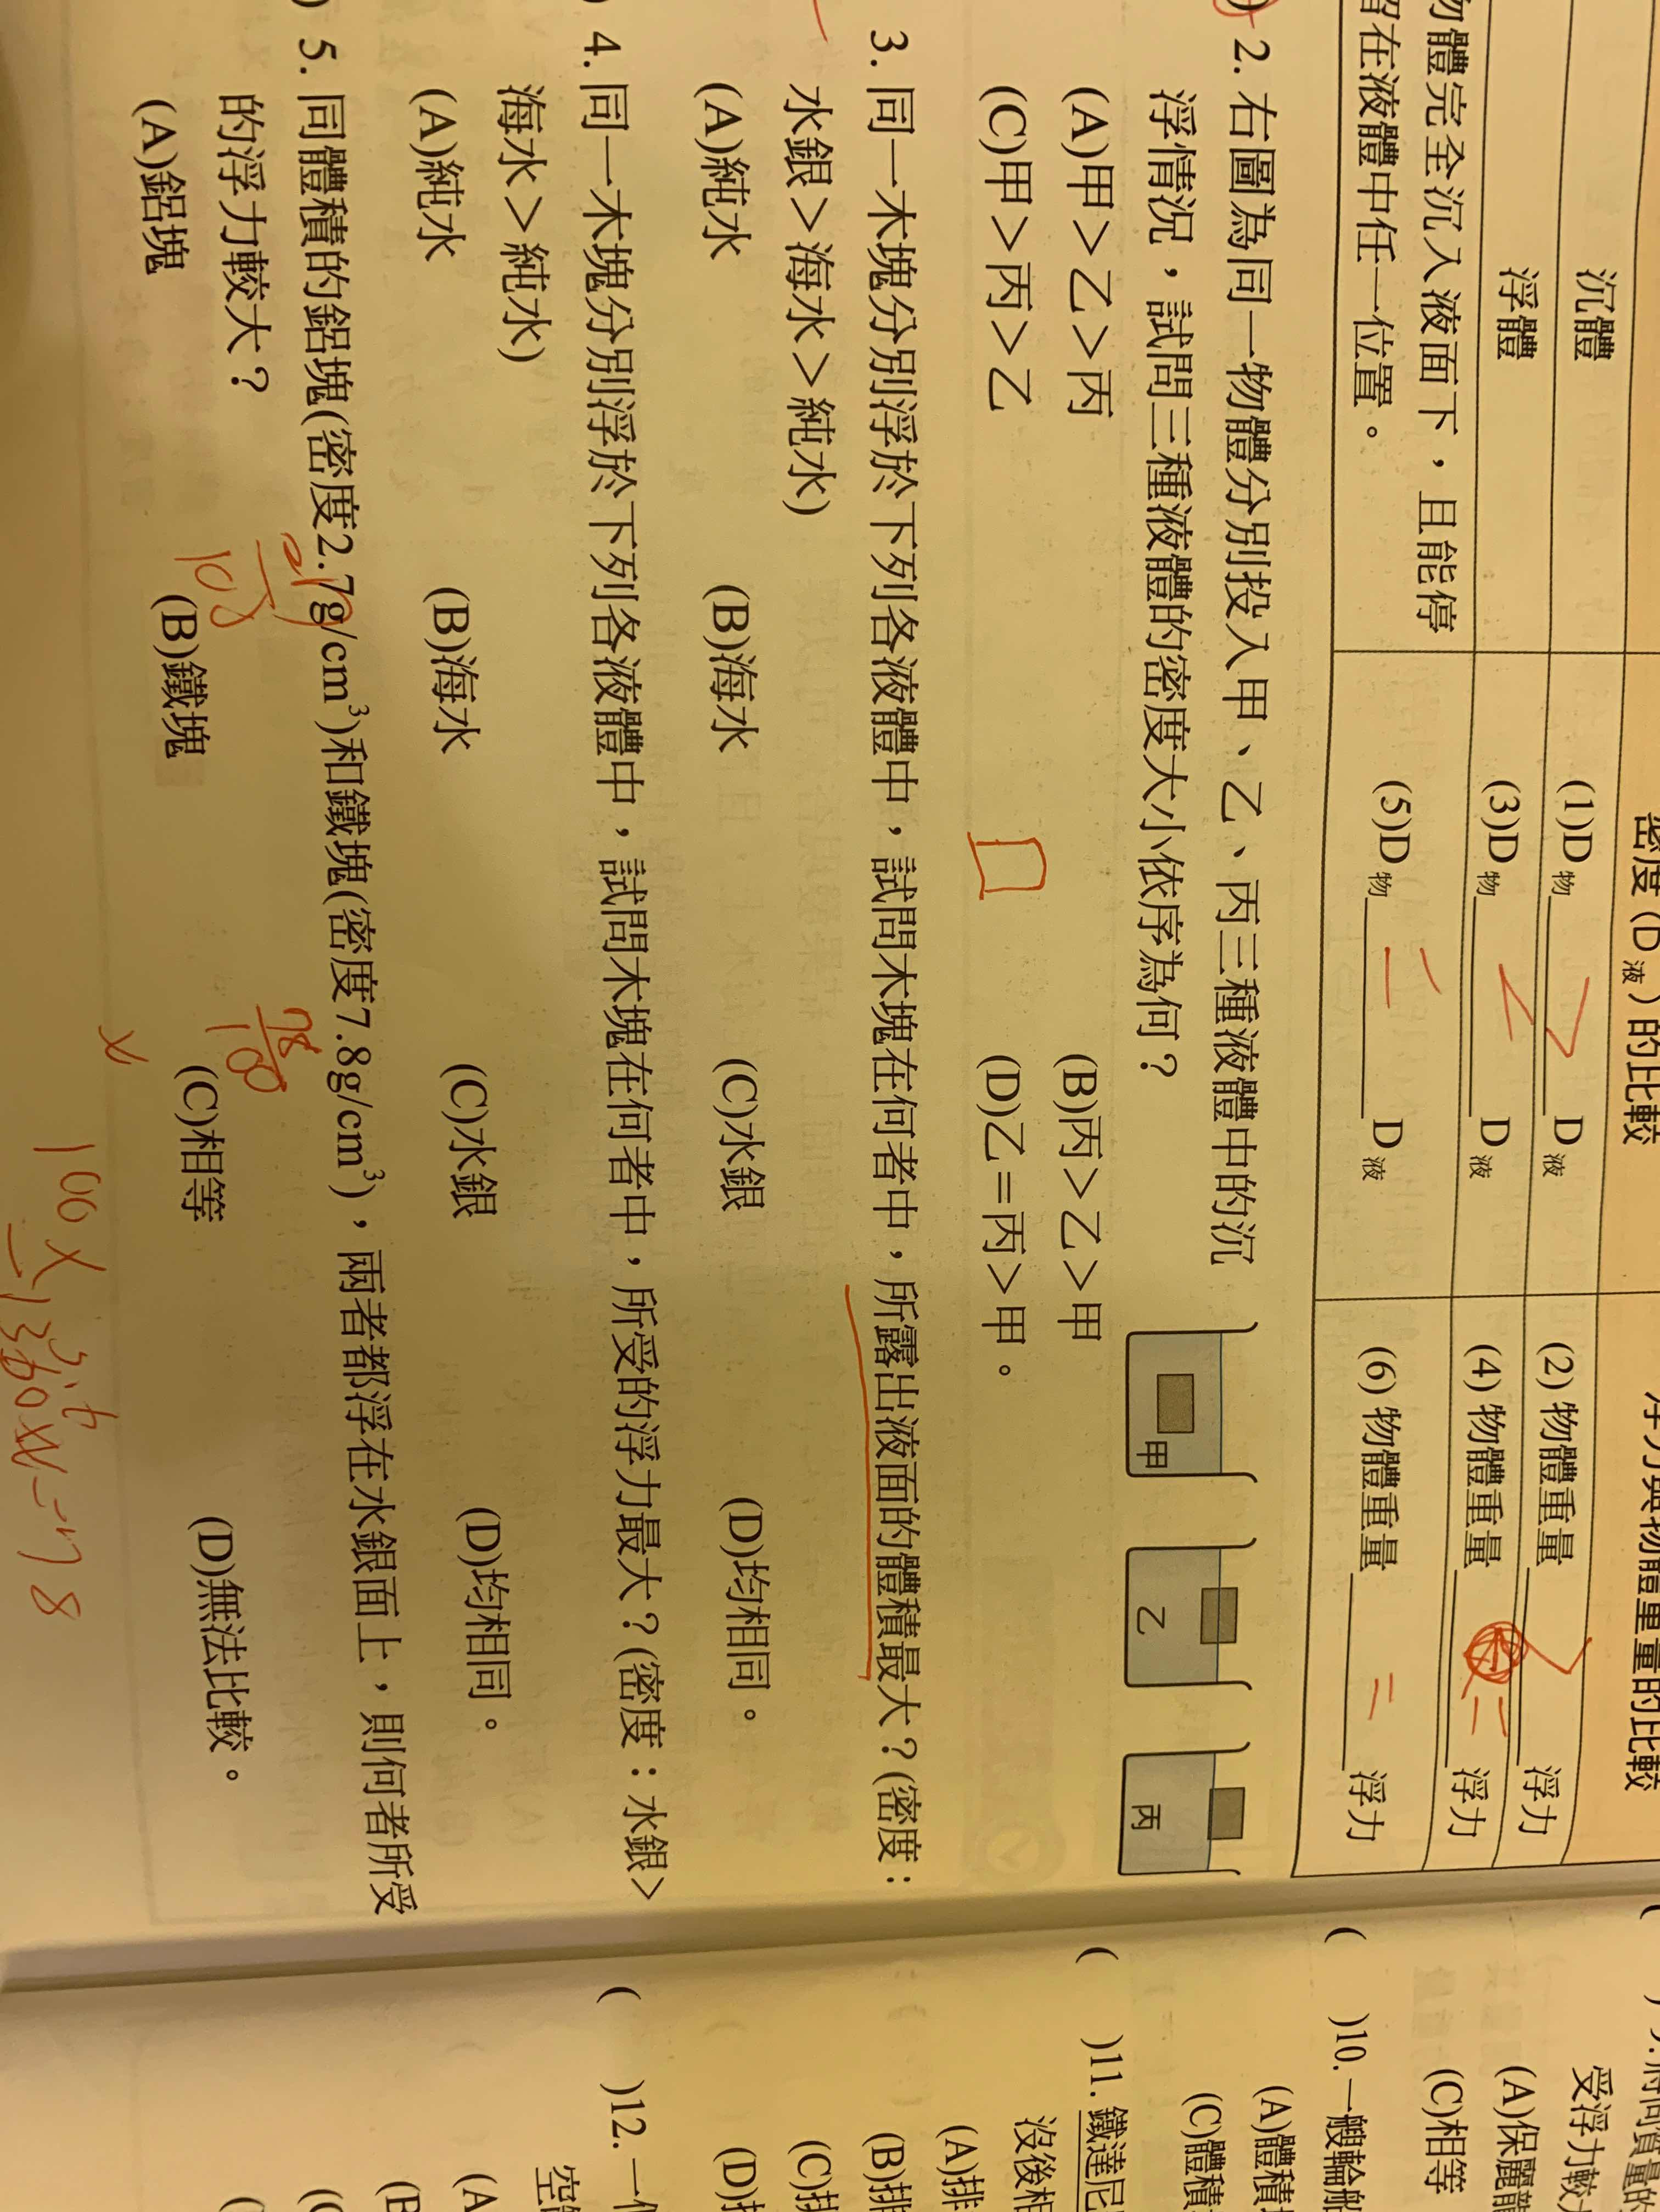 密度(D液)的比較
沉體
(1)D物 > D液
(2)物體重量 > 浮力
浮體
(3)D物 < D液
(4)物體重量 = 浮力
物體完全沉入液面下,且能停
留在液體中任一位置。
(5)D物 = D液
(6)物體重量 = 浮力
) 2. 右圖為同一物體分別投入甲、乙、丙三種液體中的沉
浮情況,試問三種液體的密度大小依序為何?
(A)甲>乙>丙 (B)丙>乙>甲
(C)甲>丙>乙 (D)乙=丙>甲。
甲 乙 丙
3. 同一木塊分別浮於下列各液體中,試問木塊在何者中,所露出液面的體積最大?(密度:
水銀>海水>純水)
(A)純水 (B)海水 (C)水銀 (D)均相同。
) 4. 同一木塊分別浮於下列各液體中,試問木塊在何者中,所受的浮力最大?(密度:水銀>
海水>純水)
(A)純水 (B)海水 (C)水銀 (D)均相同。
) 5. 同體積的鋁塊(密度2.7g/cm³)和鐵塊(密度7.8g/cm³),兩者都浮在水銀面上,則何者所受
的浮力較大?
(A)鋁塊 (B)鐵塊 (C)相等 (D)無法比較。
100
78
100
受浮力較
(A)保麗
(C)相等
( )10. 一艘輪船
(A)體積
(C)體積
( )11. 鐵達尼
沒後相
(A)排
(B)排
(C)排
( )12. 一